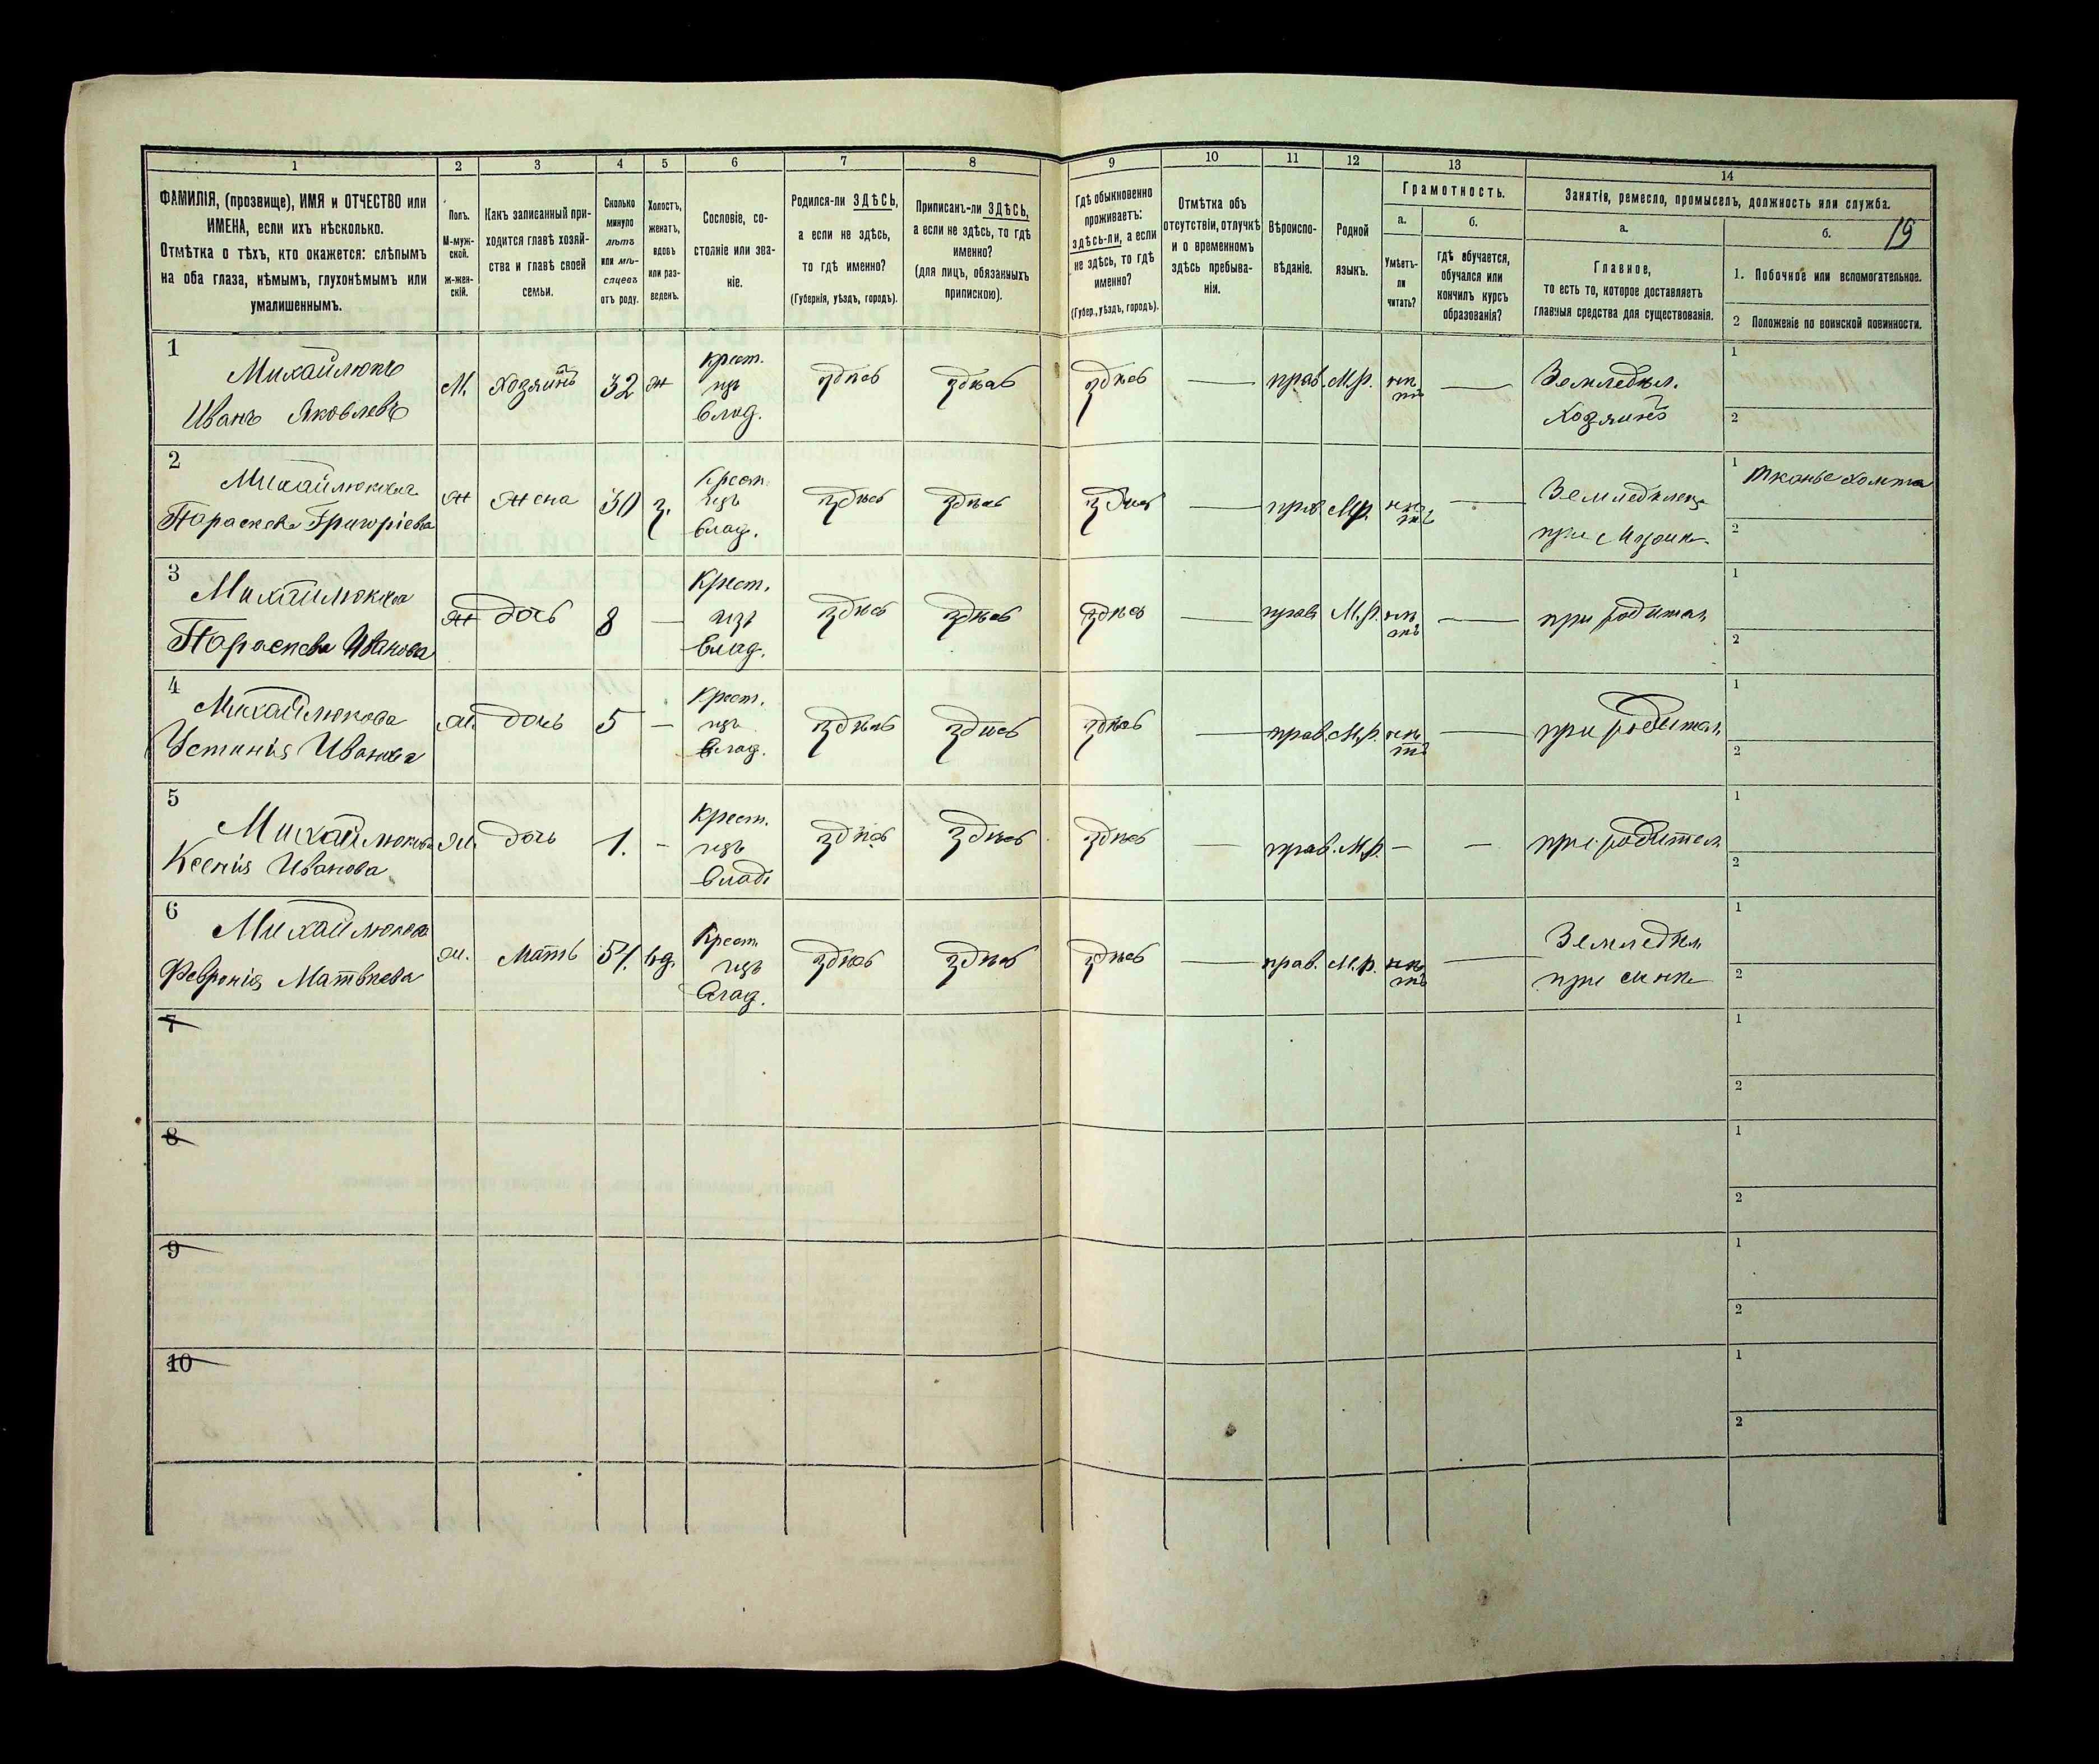 1 2 3 4 5 6 7 8 9 10 11 12 13 14
ФАМИЛІЯ, (прозвище), ИМЯ и ОТЧЕСТВО или
ИМЕНА, если ихъ нѣсколько.
Отмѣтка о тѣхъ, кто окажется: слѣпымъ
на оба глаза, нѣмымъ, глухонѣмымъ или
умалишеннымъ.
Полъ.
М-муж-
ской.
ж-жен-
скій.
Какъ записанный при-
ходится главѣ хозяй-
ства и главѣ своей
семьи.
Сколько
минуло
лѣтъ
или мѣ-
сяцевъ
отъ роду.
Холостъ,
женатъ,
вдовъ
или раз-
веденъ.
Сословіе, со-
стояніе или зва-
ніе.
Родился-ли ЗДѢСЬ,
а если не здѣсь,
то гдѣ именно?
(Губернія, уѣздъ, городъ).
Приписанъ-ли ЗДѢСЬ,
а если не здѣсь, то гдѣ
именно?
(для лицъ, обязанныхъ
припискою).
Гдѣ обыкновенно
проживаетъ:
здѣсь-ли, а если
не здѣсь, то гдѣ
именно?
(Губер., уѣздъ, городъ).
Отмѣтка объ
отсутствіи, отлучкѣ
и о временномъ
здѣсь пребыва-
ніи.
Вѣроиспо-
вѣданіе.
Родной
языкъ.
Грамотность.
а.
Умѣетъ-
ли
читать?
б.
гдѣ обучается,
обучался или
кончилъ курсъ
образованія?
Занятія, ремесло, промыселъ, должность или служба.
а.
Главное,
то есть то, которое доставляетъ
главныя средства для существованія.
б.
19
1. Побочное или вспомогательное.
2 Положеніе по воинской повинности.
1
Михайлюкъ
Иванъ Яковлевъ
М. Хозяинъ 32 ж
Крест.
изъ
влад.
здѣсь здѣсь здѣсь — прав. М.р. нѣ
тъ —
Земледѣл.
Хозяинъ
1
2
2
Михайлюкова
Параскева Григоріева
ж жена 30 з.
Крест.
изъ
влад.
здѣсь здѣсь здѣсь — прав. М.р. нѣ
тъ —
при
1 Тканье холста
2
3
Михайлюкова
Параскева Иванова
ж дочь 8 —
Крест.
изъ
влад.
здѣсь здѣсь здѣсь — прав. М.р. нѣ
тъ —
при родител.
1
2
4
Михайлюкова
Устинія Иванова
ж. дочь 5 —
Крест.
изъ
влад.
здѣсь здѣсь здѣсь — прав. М.р. нѣ
тъ —
при родител.
1
2
5
Михайлюкова
Ксенія Иванова
ж. дочь 1. —
Крест.
изъ
влад.
здѣсь здѣсь здѣсь — прав. М.р. — —
при родител.
1
2
6
Михайлюкова
Февронія Матвѣева
ж. Мать 51. вд.
Крест.
изъ
влад.
здѣсь здѣсь здѣсь — прав. М.р. нѣ
тъ —
Земледѣл.
при сынѣ
1
2
7
1
2
8
1
2
9
1
2
10
1
2